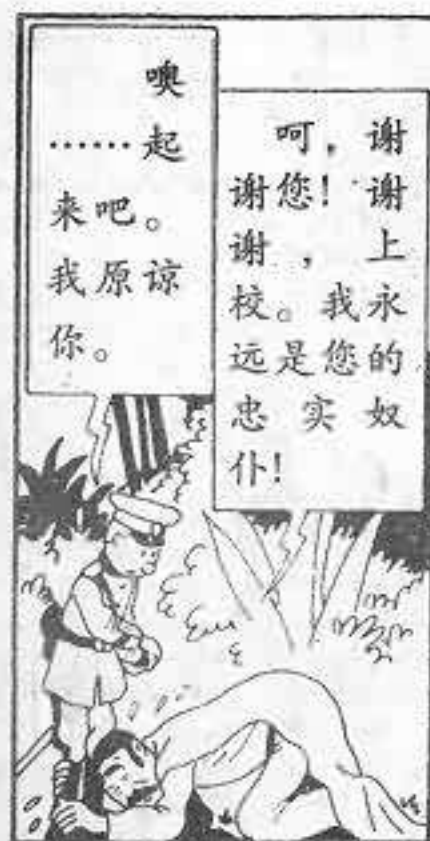 噢
……起
来吧。
我原谅
你。
呵，谢
谢您！谢
谢，上
校。我永
远是您的
忠实奴
仆！